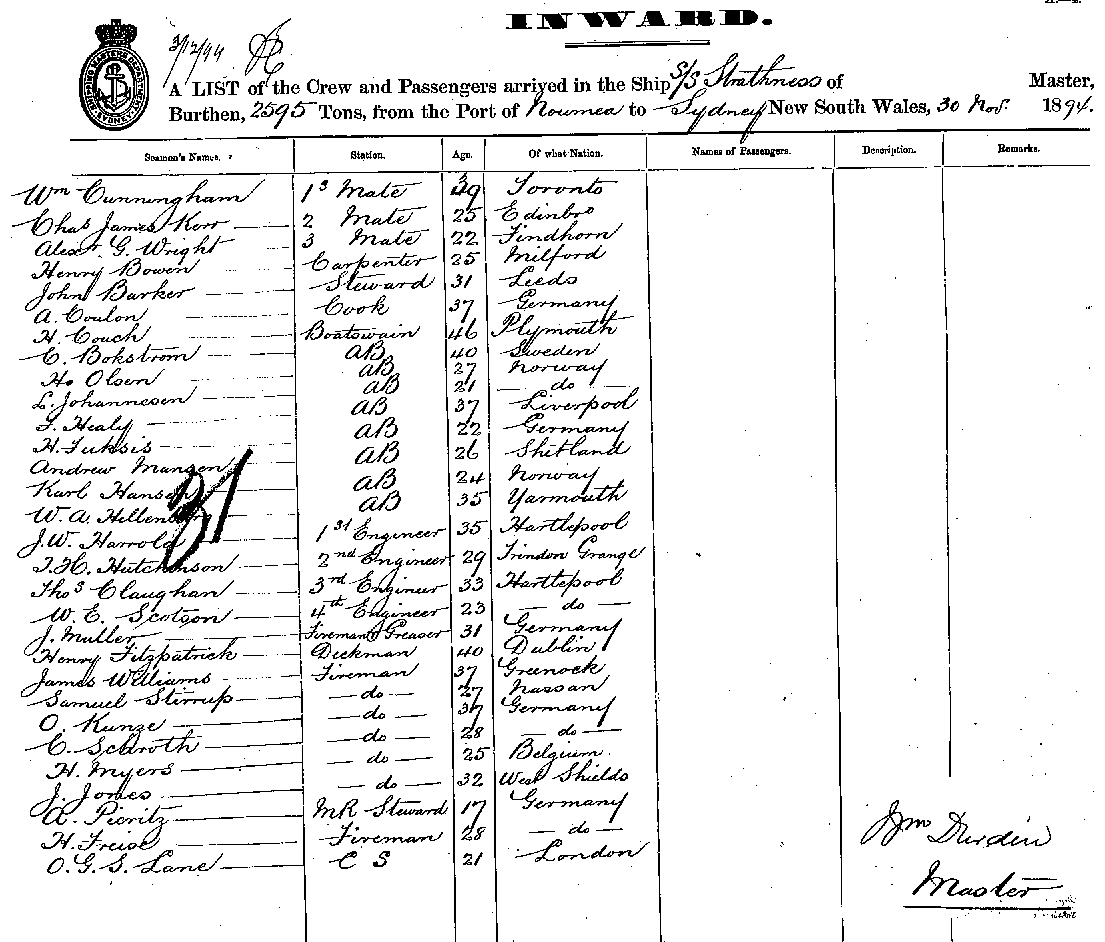 INWARD.
3/12/94
SHIPPING MASTER'S DEPARTMENT SYDNEY
A LIST of the Crew and Passengers arrived in the Ship S/S Strathness of Master,
Burthen, 2595 Tons, from the Port of Noumea to Sydney New South Wales, 30 Nov. 1894.
Seamen's Names. Station. Age. Of what Nation. Names of Passengers. Description. Remarks.
Wm Cunningham 1s Mate 39 Toronto
Chas James Korr 2 Mate 25 Edinbro
Alexr. G. Wright 3 Mate 22 Findhorn
Henry Bowen Carpenter 25 Milford
John Barker Steward 31 Leeds
A. Coulon Cook 37 Germany
H. Couch Boatswain 46 Plymouth
C. Bokstrom AB 40 Sweden
Ho Olsen AB 27 Norway
L. Johannesen AB 21 — do —
F. Healy AB 37 Liverpool
H. Fuksis AB 22 Germany
Andrew Mangen AB 26 Shitland
Karl Hansen AB 24 Norway
W. A. Hillenberg AB 35 Yarmouth
J. W. Harrold 1st Engineer 35 Hartlepool
T. H. Hutchinson 2nd Engineer 29 Trindon Grange
Thos Claughan 3rd Engineer 33 Hartlepool
W. E. Scotson 4th Engineer 23 — do —
J. Muller Fireman & Greaser 31 Germany
Henry Fitzpatrick Deckman 40 Dublin
James Williams Fireman 37 Greenock
Samuel Stirrup — do — 27 Nassan
O. Kunze — do — 37 Germany
C. Schroth — do — 28 — do —
H. Myers — do — 25 Belgium
J. Jones — do — 32 West Shields
A. Pieritz MR Steward 17 Germany
H. Freise Fireman 28 — do —
O. G. S. Lane C S 21 London
31
Jno Durdin
Master